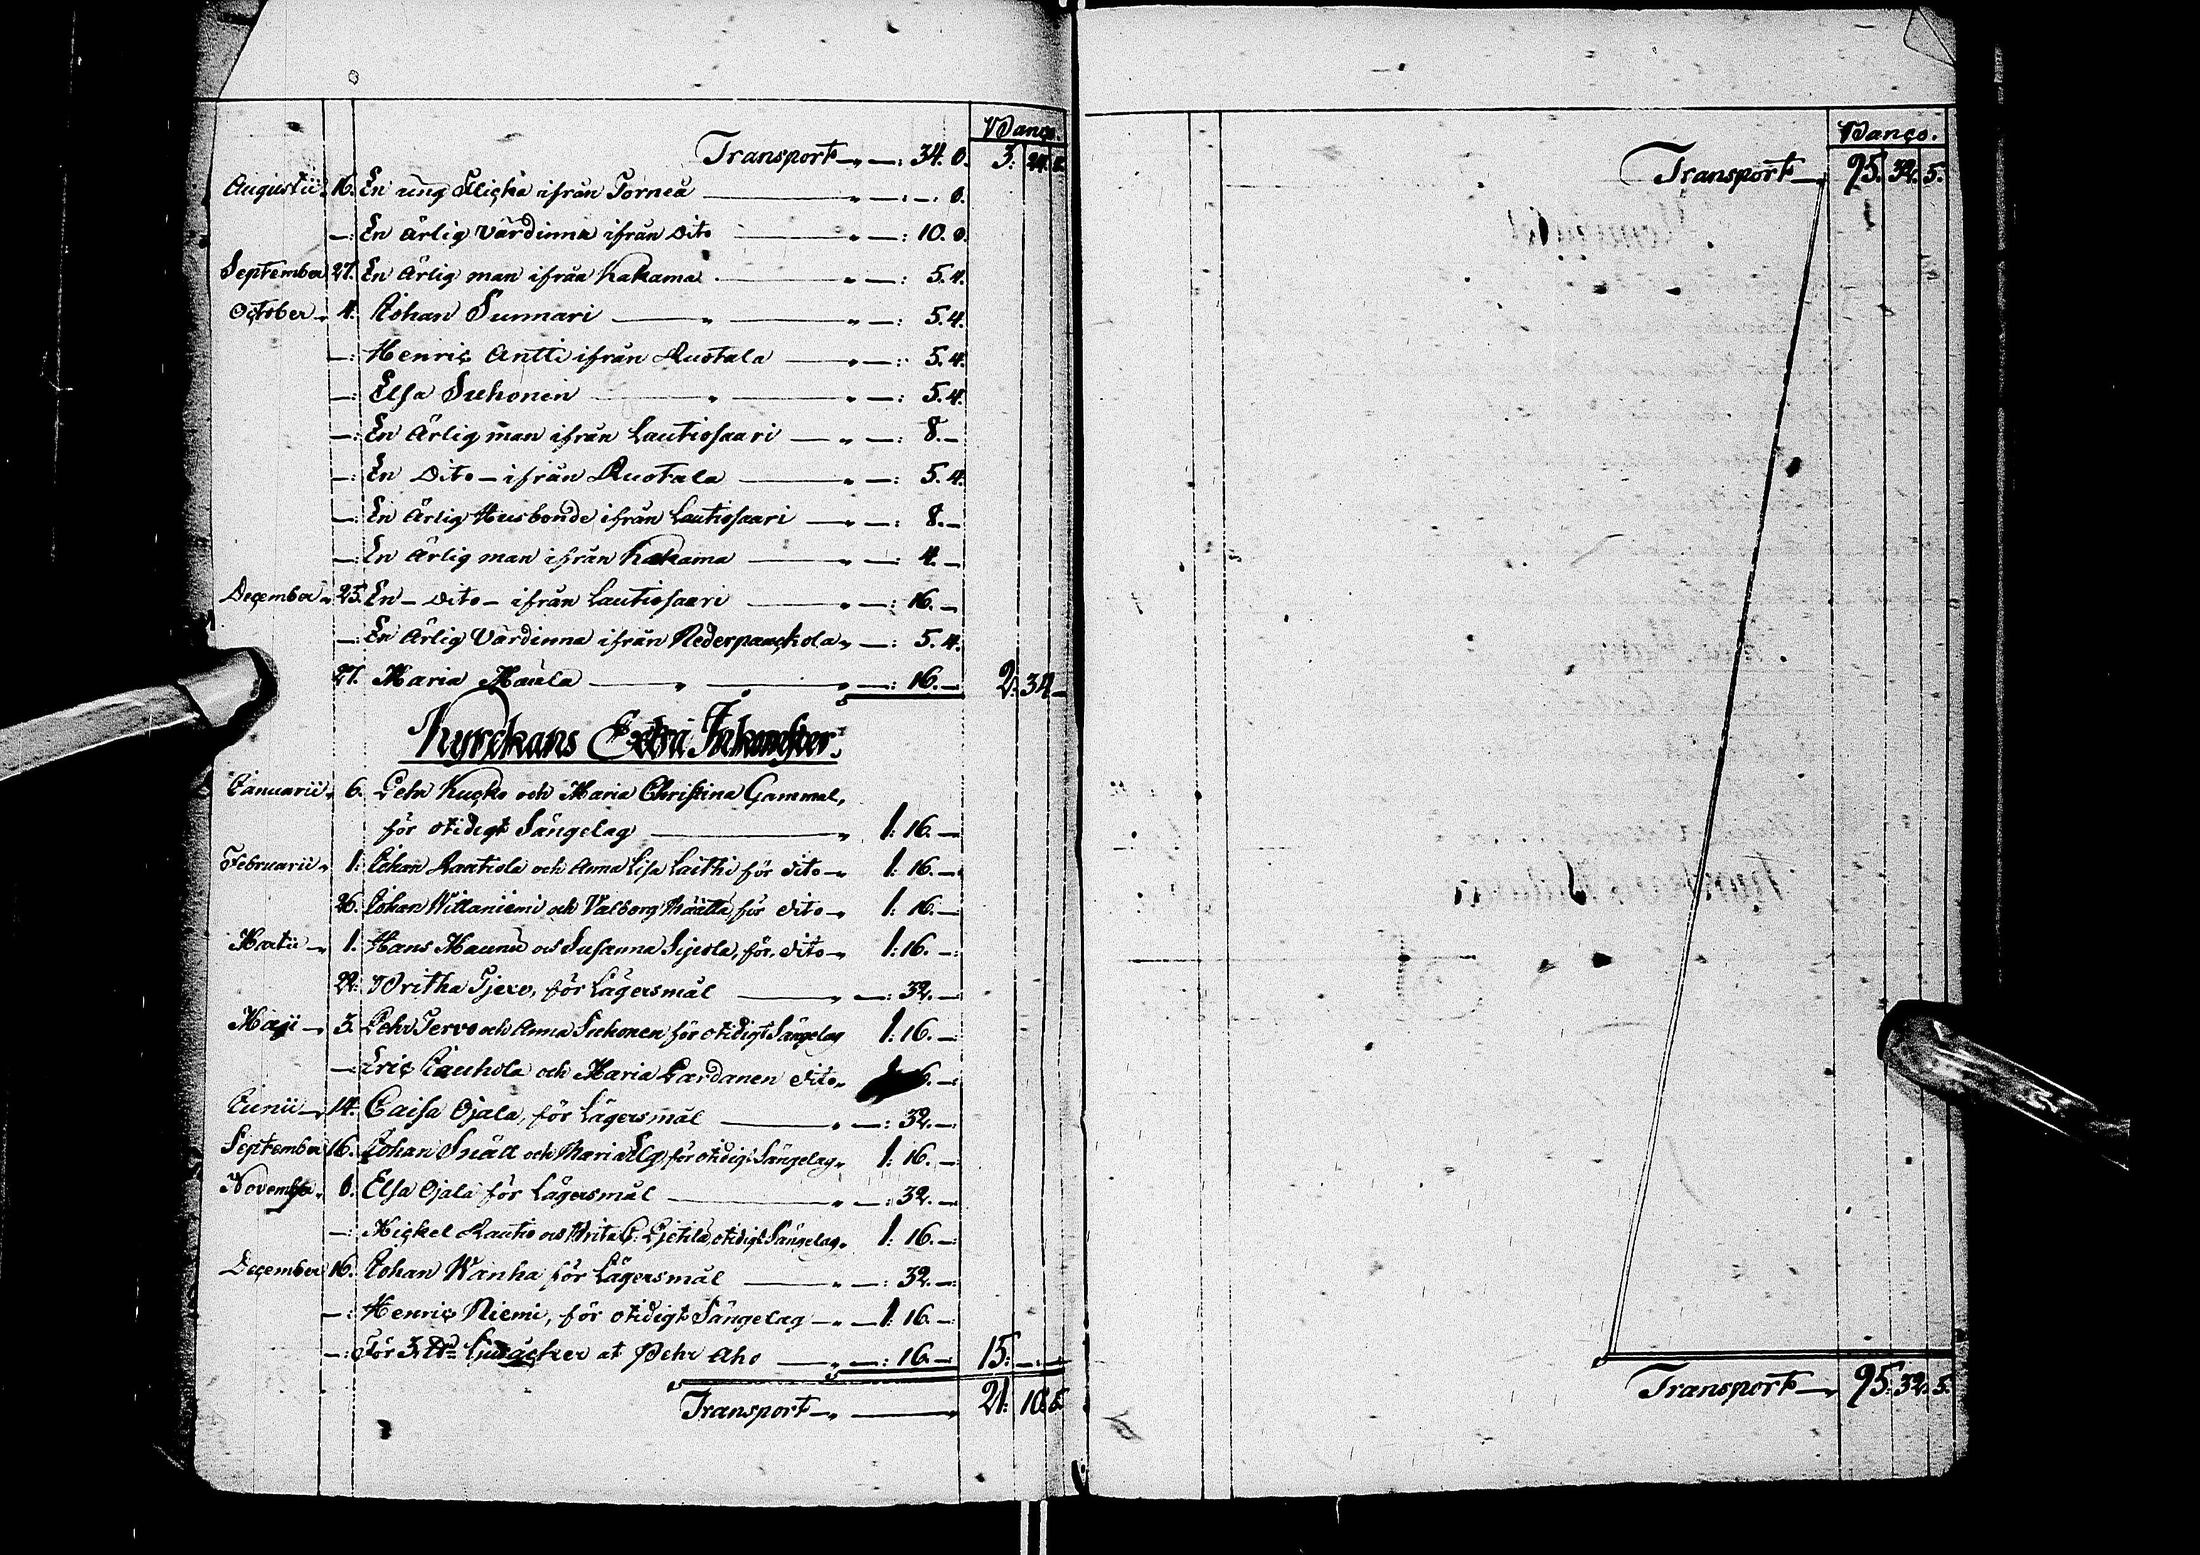 Banco.
Transport — : 34. 8. 3: 24. 8.
Augustii 16. En ung Flicka ifrån Torneå — : — : 8.
— : En Ärlig Värdinna ifrån Dito — : 10. 8.
September 27. En Ärlig man ifrån Kakama — : 5. 4.
October 4. Johan Sunnari — : 5. 4.
— : Henric Antti ifrån Ruotala — : 5. 4.
— : Elsa Suhonen — : 5. 4.
— : En Ärlig man ifrån Lautiosaari — : 8. —
— : En Dito — ifrån Ruotala — : 5. 4.
— : En Ärlig Husbonde ifrån Lautiosaari — : 8. —
— : En Ärlig man ifrån Kakama — : 4. —
December 25. En — Dito — ifrån Lautiosaari — : 16. —
— : En Ärlig Värdinna ifrån Nederpaackola — : 5. 4.
27. Maria Maula — : 16. — 2: 34 —
Kyrckans Extra Inkomster.
Januarii 6. Pehr Kucko och Maria Christina Gammal,
för otidigt Sängelag — 1: 16. —
Februarii 1. Johan Rautiola och Anna Lisa Laithi för dito — 1: 16. —
26. Johan Willaniemi och Valborg Määttä för dito — 1: 16. —
Martii 1. Hans Maunu och Susanna, för dito — 1: 16. —
22. Britha, för Lägersmål — : 32. —
Maji 3. Pehr Tervo och Anna Suhonen för otidigt Sängelag 1: 16. —
— : Eric Jauhola och Maria Pardanen dito 6. —
Junii 14. Caisa Ojala, för Lägersmål — : 32. —
September 16. Johan Snäll och Maria Elg för otidigt Sängelag 1: 16. —
November 8. Elsa Ojala för Lägersmål — : 32. —
— : Mickel Rautio och Brita C. otidigt Sängelag 1: 16. —
December 16. Johan Wanha för Lägersmål — : 32. —
— : Henric Niemi, för otidigt Sängelag — 1: 16. —
— : För 3. at Pehr Aho — : 16. — 15: — : —
Transport — 21: 10. 8.
Banco.
Transport — 95. 32. 5.
Transport — 95: 32. 5.